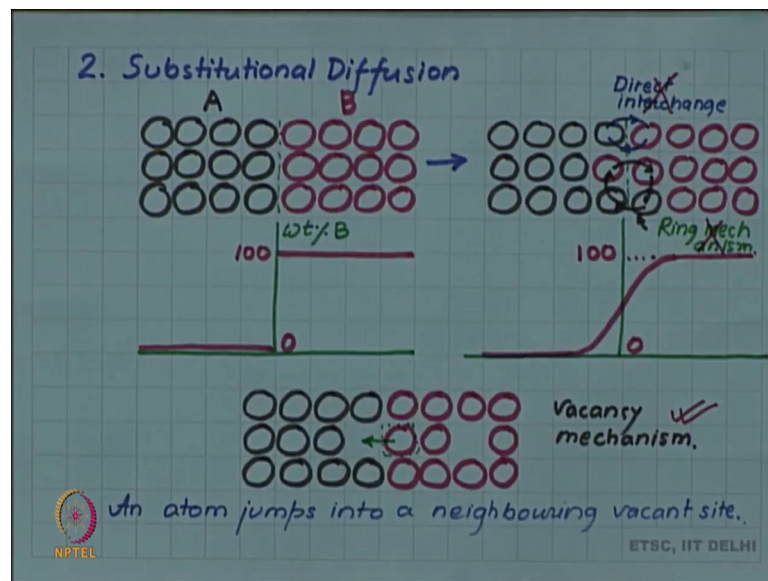 2. Substitutional Diffusion
A
B
Direct
interchange
wt% B
100
0
Ring Mech
anism.
100 ....
0
Vacancy
mechanism.
An atom jumps into a neighbouring vacant site.
NPTEL
ETSC, IIT DELHI